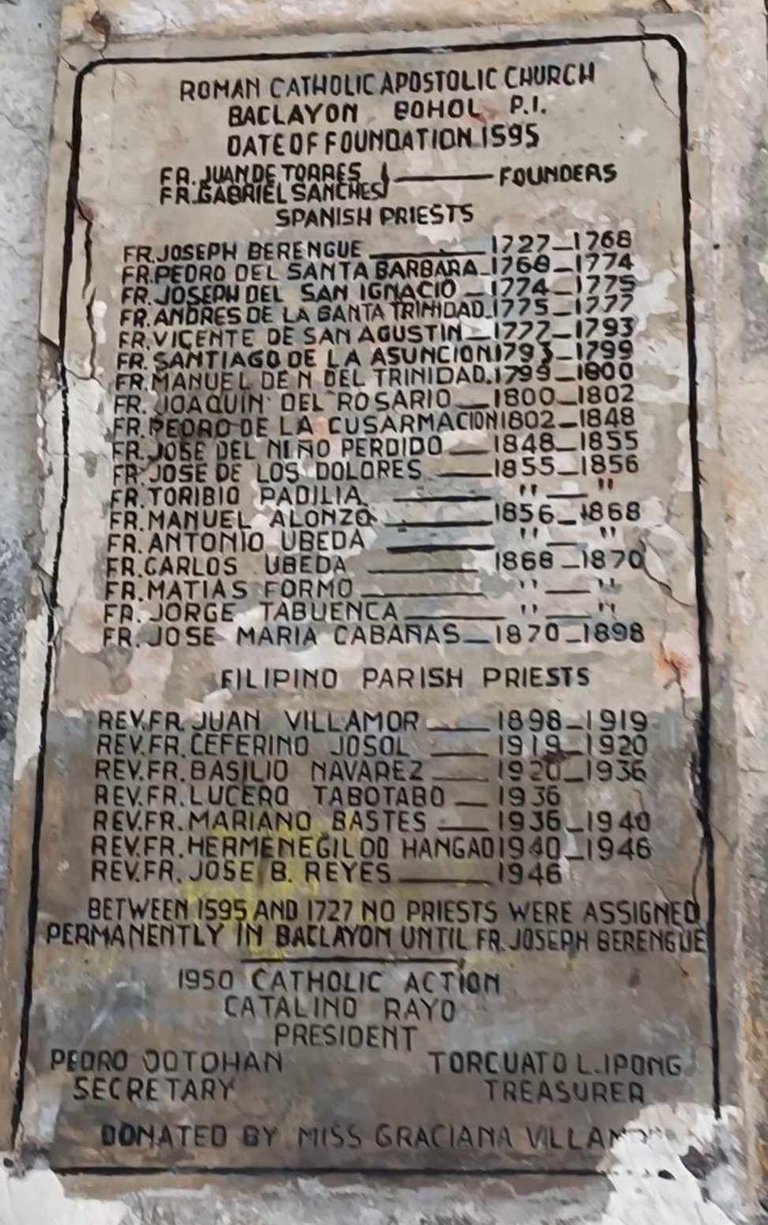 ROMAN CATHOLIC APOSTOLIC CHURCH
BACLAYON BOHOL P.I.
DATE OF FOUNDATION 1595
FR. JUAN DE TORRES
FR. GABRIEL SANCHES FOUNDERS
SPANISH PRIESTS
FR. JOSEPH BERENGUE 1727-1768
FR. PEDRO DEL SANTA BARBARA 1768-1774
FR. JOSEPH DEL SAN IGNACIO 1774-1775
FR. ANDRES DE LA SANTA TRINIDAD 1775-1777
FR. VICENTE DE SAN AGUSTIN 1777-1793
FR. SANTIAGO DE LA ASUNCION 1793-1799
FR. MANUEL DE N DEL TRINIDAD 1799-1800
FR. JOAQUIN DEL ROSARIO 1800-1802
FR. PEDRO DE LA CUSARMACION 1802-1848
FR. JOSE DEL NIÑO PERDIDO 1848-1855
FR. JOSE DE LOS DOLORES 1855-1856
FR. TORIBIO PADILIA " — "
FR. MANUEL ALONZO 1856-1868
FR. ANTONIO UBEDA " — "
FR. CARLOS UBEDA 1868-1870
FR. MATIAS FORMO " — "
FR. JORGE TABUENCA " — "
FR. JOSE MARIA CABAÑAS 1870-1898
FILIPINO PARISH PRIESTS
REV. FR. JUAN VILLAMOR 1898-1919
REV. FR. CEFERINO JOSOL 1919-1920
REV. FR. BASILIO NAVAREZ 1920-1936
REV. FR. LUCERO TABOTABO 1936
REV. FR. MARIANO BASTES 1936-1940
REV. FR. HERMENEGILDO HANGAD 1940-1946
REV. FR. JOSE B. REYES 1946
BETWEEN 1595 AND 1727 NO PRIESTS WERE ASSIGNED
PERMANENTLY IN BACLAYON UNTIL FR. JOSEPH BERENGUE
1950 CATHOLIC ACTION
CATALINO RAYO
PRESIDENT
PEDRO OOTOHAN TORCUATO L. IPONG
SECRETARY TREASURER
DONATED BY MISS GRACIANA